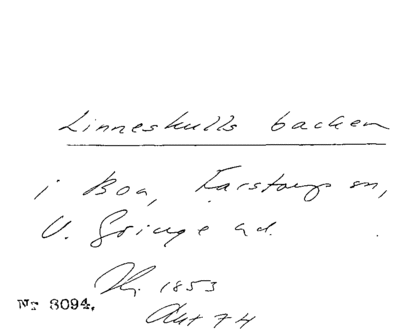 Linneskulls backen
i Boa, Farstorps sn,
V. Göinge hd.
1853
74
Nr 8094.